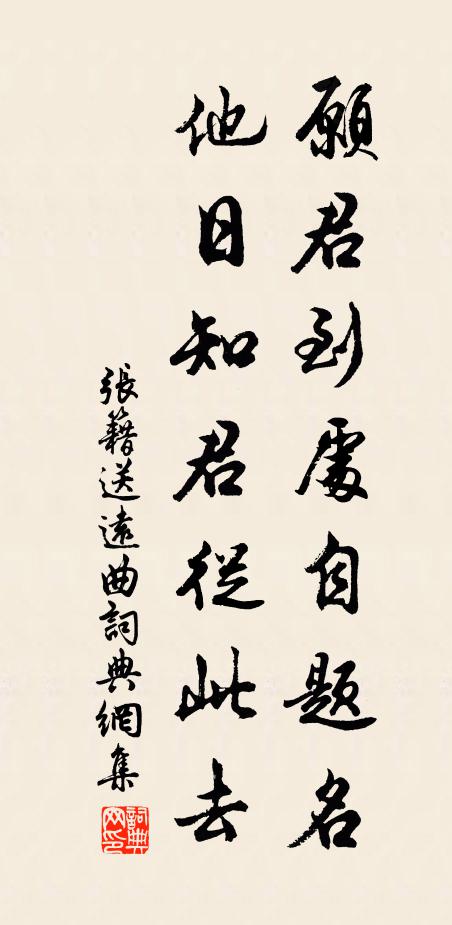 願君到處自題名
他日知君從此去
張籍送遠曲詞典網集
詞典网印